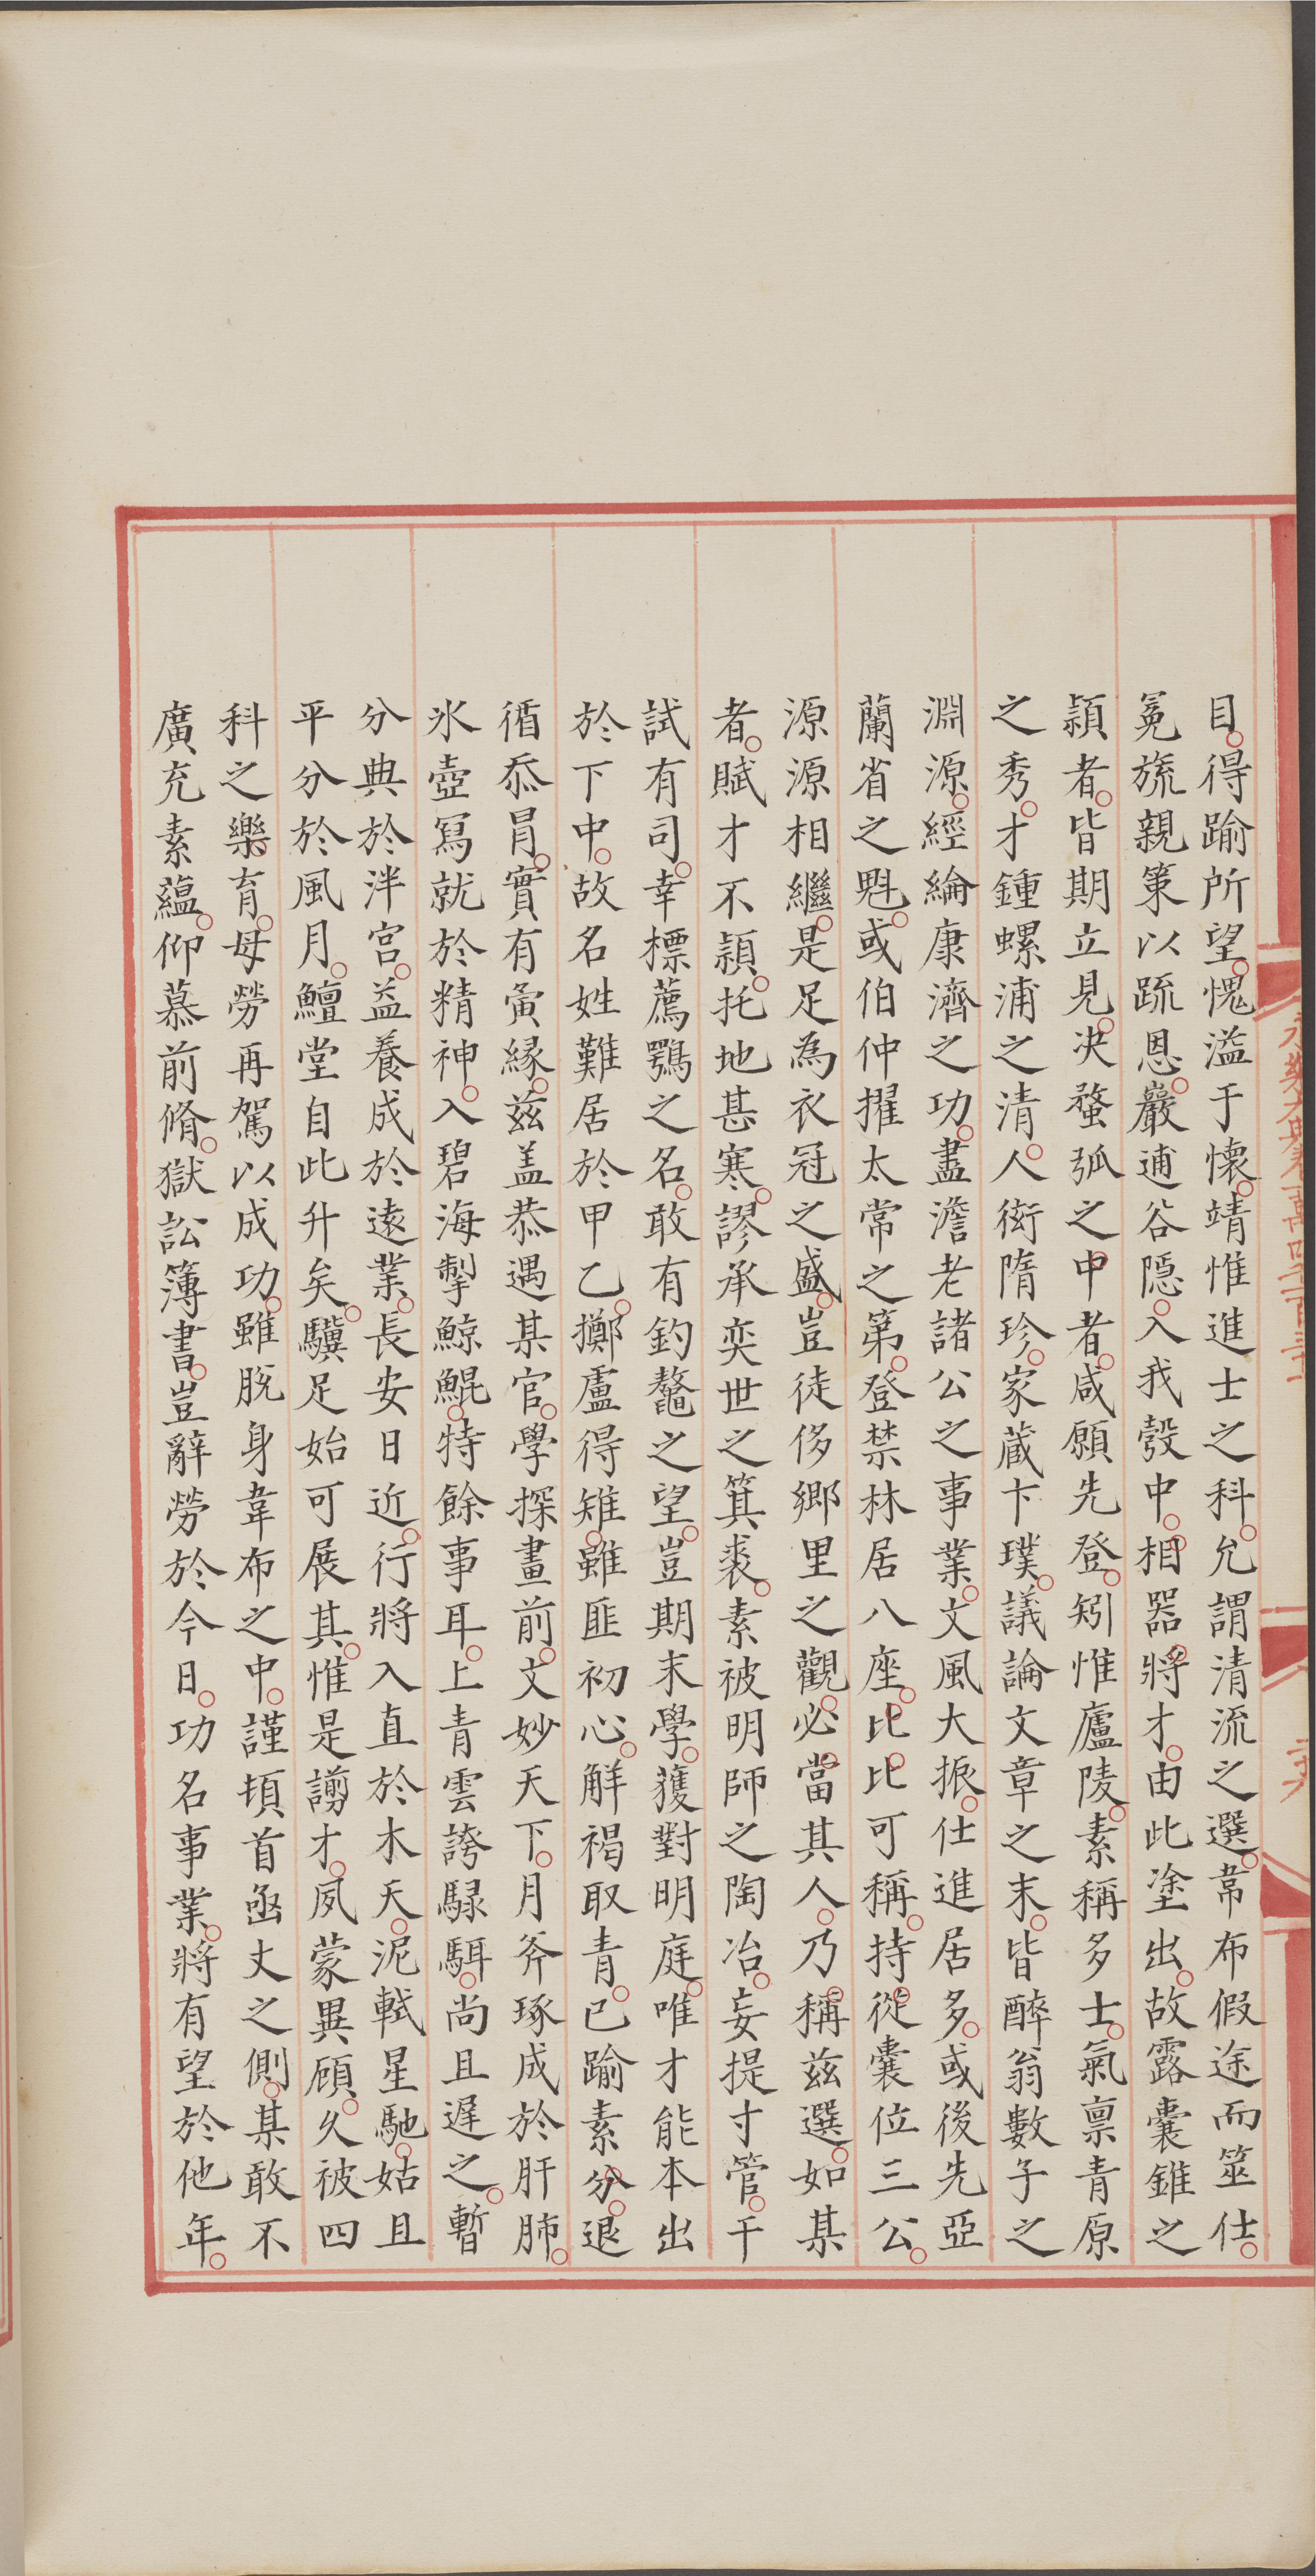 目得踰所望愧溢于懷靖惟進士之科允謂清流之選韋布假途而筮仕
冕旒親策以疏恩巖逋谷隱入我彀中相器將才由此塗出故露囊錐之
穎者皆期立見決蝥弧之中者咸願先登矧惟廬陵素稱多士氣禀青原
之秀才鍾螺浦之清人衒隋珍家蔵卞璞議論文章之末皆醉翁數子之
淵源經綸康濟之功盡澹老諸公之事業文風大振仕進居多或後先亞
蘭省之魁或伯仲擢太常之第登禁林居八座比比可稱持從囊位三公
源源相繼是足為衣冠之盛豈徒侈鄉里之觀必當其人乃稱兹選如某
者賦才不穎托地甚寒謬承奕世之箕裘素被明師之陶冶妄提寸管干
試有司幸標薦鶚之名敢有釣鼇之望豈期末學獲對明庭唯才能本出
於下中故名姓難居於甲乙擲盧得雉雖匪初心解褐取青已踰素分退
循忝冐實有夤縁兹盖恭遇某官學探畫前文妙天下月斧琢成於肝肺
氷壺冩就於精神入碧海掣鯨鯤特餘事耳上青雲誇騄駬尚且遲之暫
分典於泮宫益養成於遠業長安日近行將入直於木天泥軾星馳姑且
平分於風月鱣堂自此升矣驥足始可展其惟是謭才夙蒙異顧久被四
科之樂育毋勞再駕以成功雖脫身韋布之中謹頓首函丈之側某敢不
廣充素蘊仰慕前脩獄訟簿書豈辭勞於今日功名事業將有望於他年